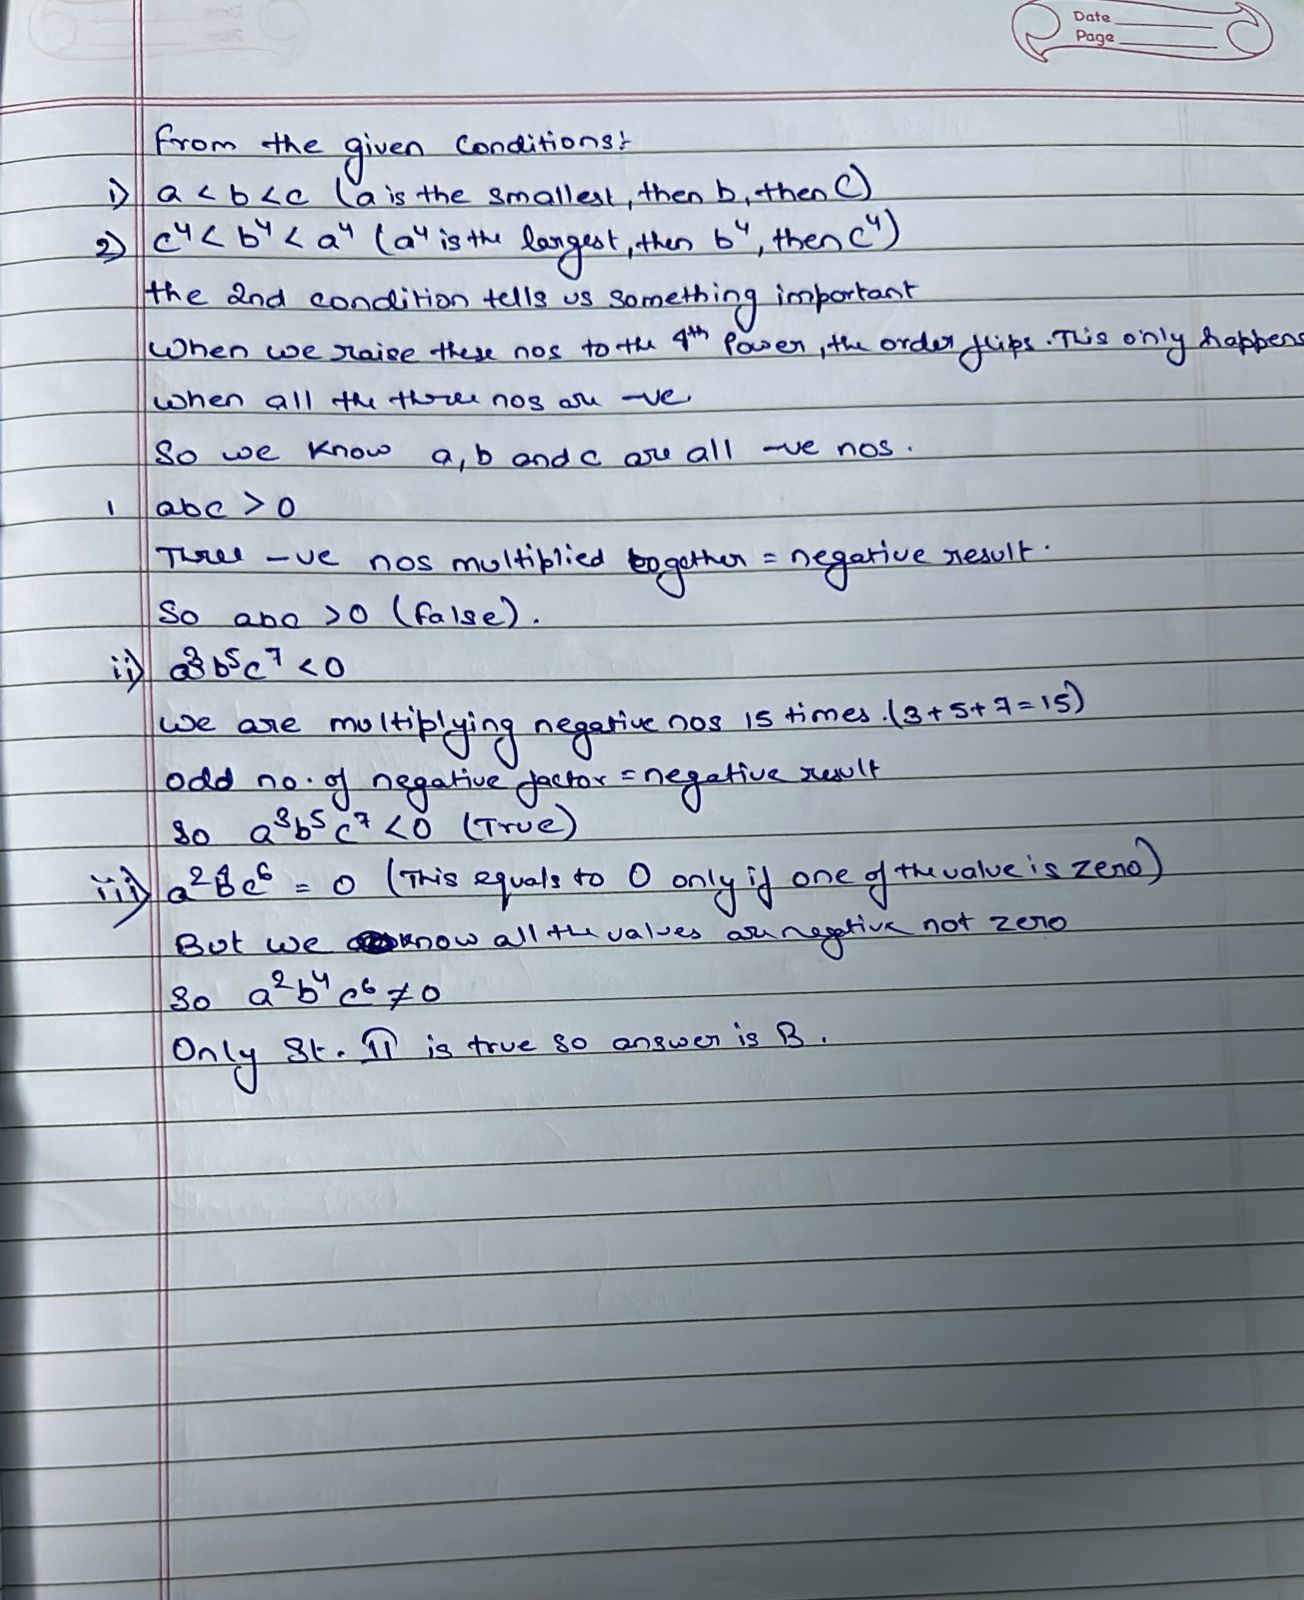 Date
Page
from the given conditions:
1) a < b < c (a is the smallest, then b, then c)
2) c⁴ < b⁴ < a⁴ (a⁴ is the largest, then b⁴, then c⁴)
the 2nd condition tells us something important
When we raise these nos to the 4th Power, the order flips. This only happens
when all the three nos are -ve
So we know a, b and c are all -ve nos.
1 abc > 0
Three -ve nos multiplied together = negative result.
So abc > 0 (false).
ii) a³b⁵c⁷ < 0
We are multiplying negative nos 15 times. (3+5+7=15)
odd no. of negative factor = negative result
So a³b⁵c⁷ < 0 (True)
iii) a²b⁴c⁶ = 0 (This equals to 0 only if one of the value is zero)
But we know all the values are negative not zero
So a²b⁴c⁶ ≠ 0
Only St. II is true so answer is B.